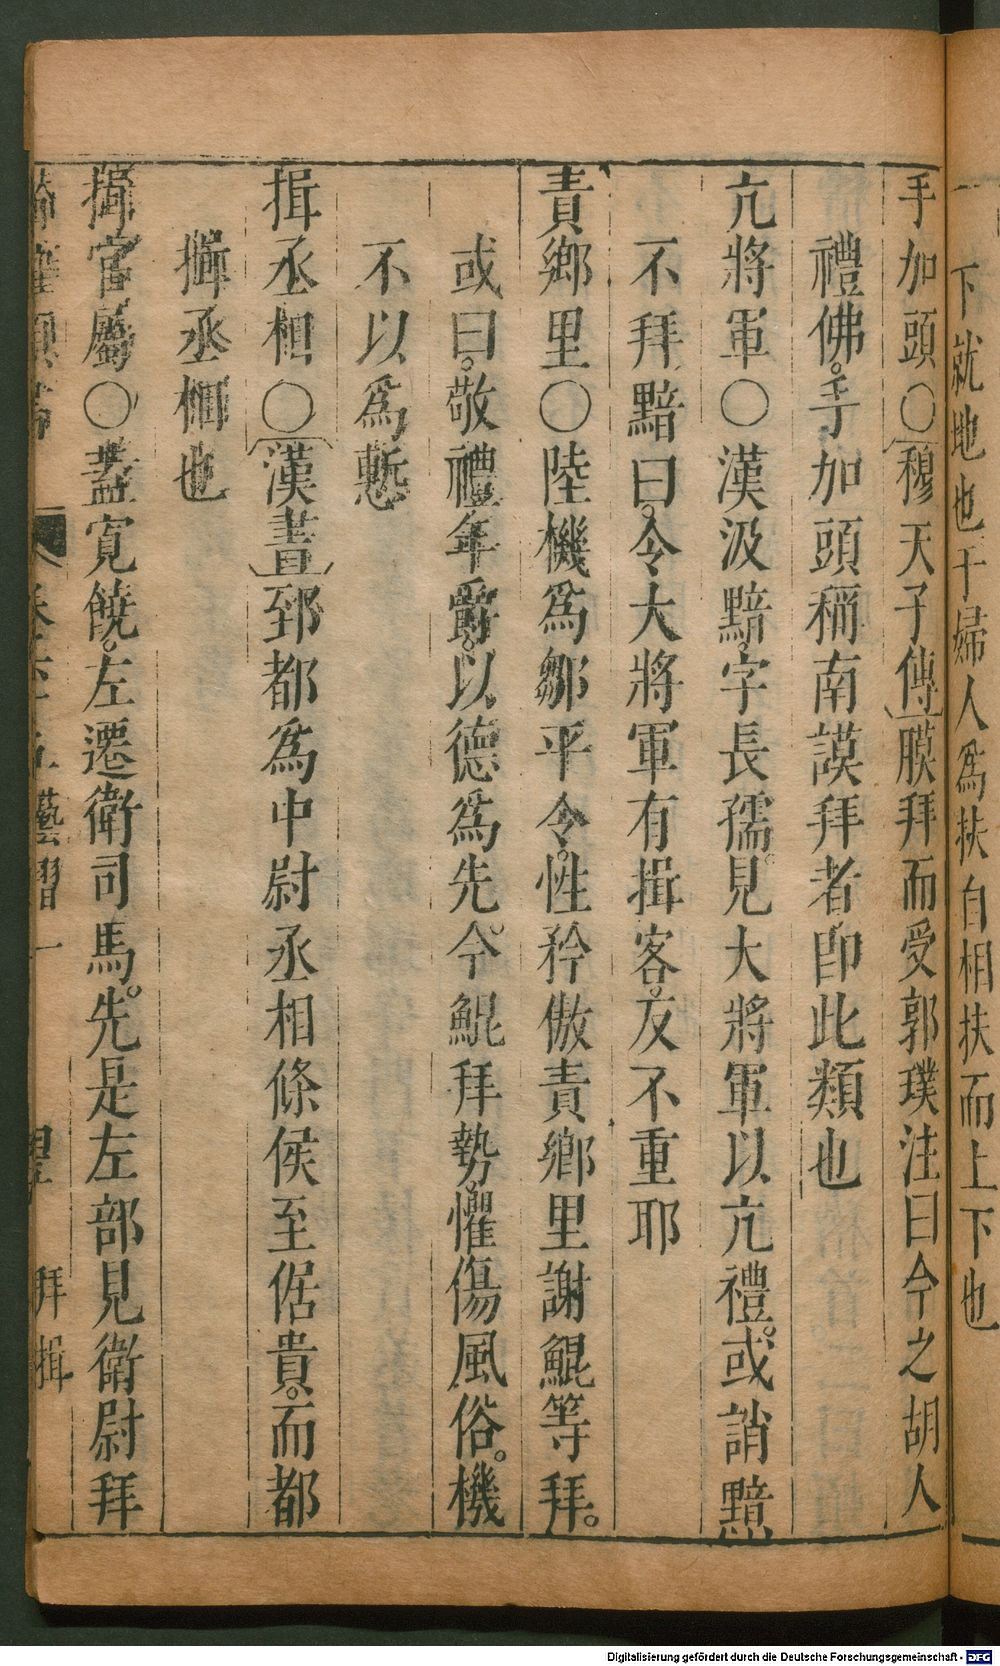 下就地也干婦人爲扶自相扶而上下也
手加頭〇穆天子傳膜拜而受郭璞注曰今之胡人
禮佛。手加頭稱南謨拜者卽此類也
亢將軍〇漢汲黯。字長孺。見大將軍以亢禮。或誚黯
不拜黯曰。令大將軍有揖客。反不重耶
責鄉里〇陸機爲鄒平令。性矜傲責鄉里謝鯤等拜。
或曰。敬禮年爵。以德爲先。今鯤拜勢。懼傷風俗。機
不以爲慙
揖丞相〇漢書郅都爲中尉丞相條侯至倨貴。而都
揖丞相也
揖官屬〇蓋寛饒。左遷衛司馬。先是左部見衛尉拜
藝習一 拜揖
Digitalisierung gefördert durch die Deutsche Forschungsgemeinschaft - DFG